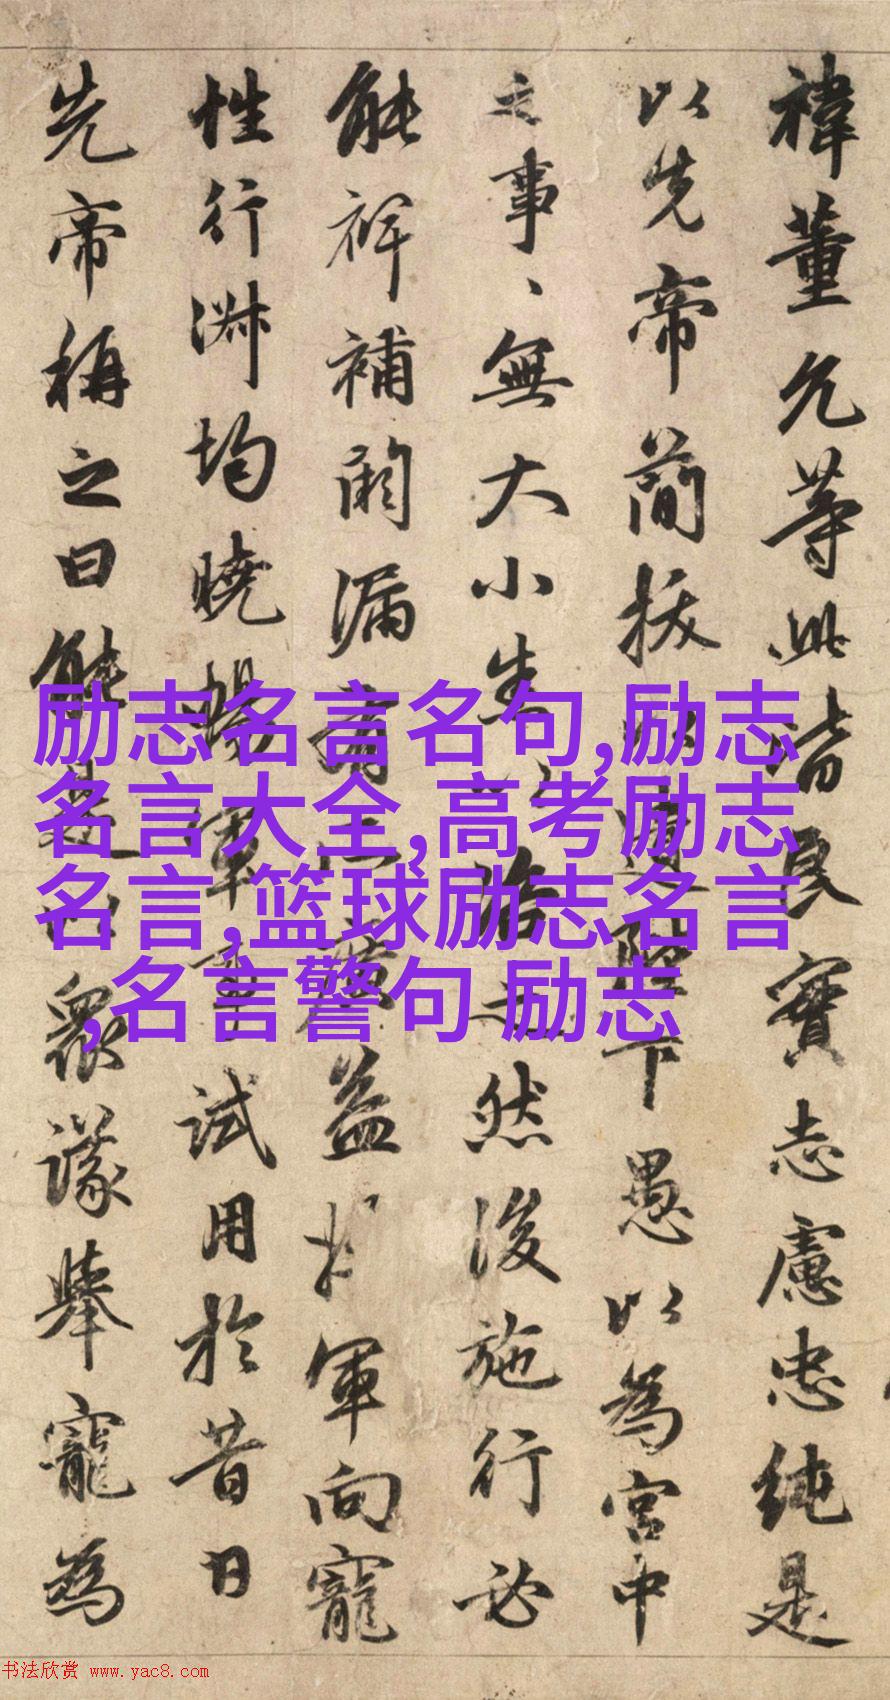 禕董允等此皆良實志慮忠純是
以先帝簡拔以遺陛下愚以為宮中
之事、無大小以咨之然後施行必
能裨補闕漏有所廣益將軍向寵
性行淑均曉暢軍事試用於昔日
先帝稱之曰能是以眾議舉寵為
励志名言名句,励志
名言大全,高考励志
名言,篮球励志名言
,名言警句 励志
书法欣赏 www.yac8.com